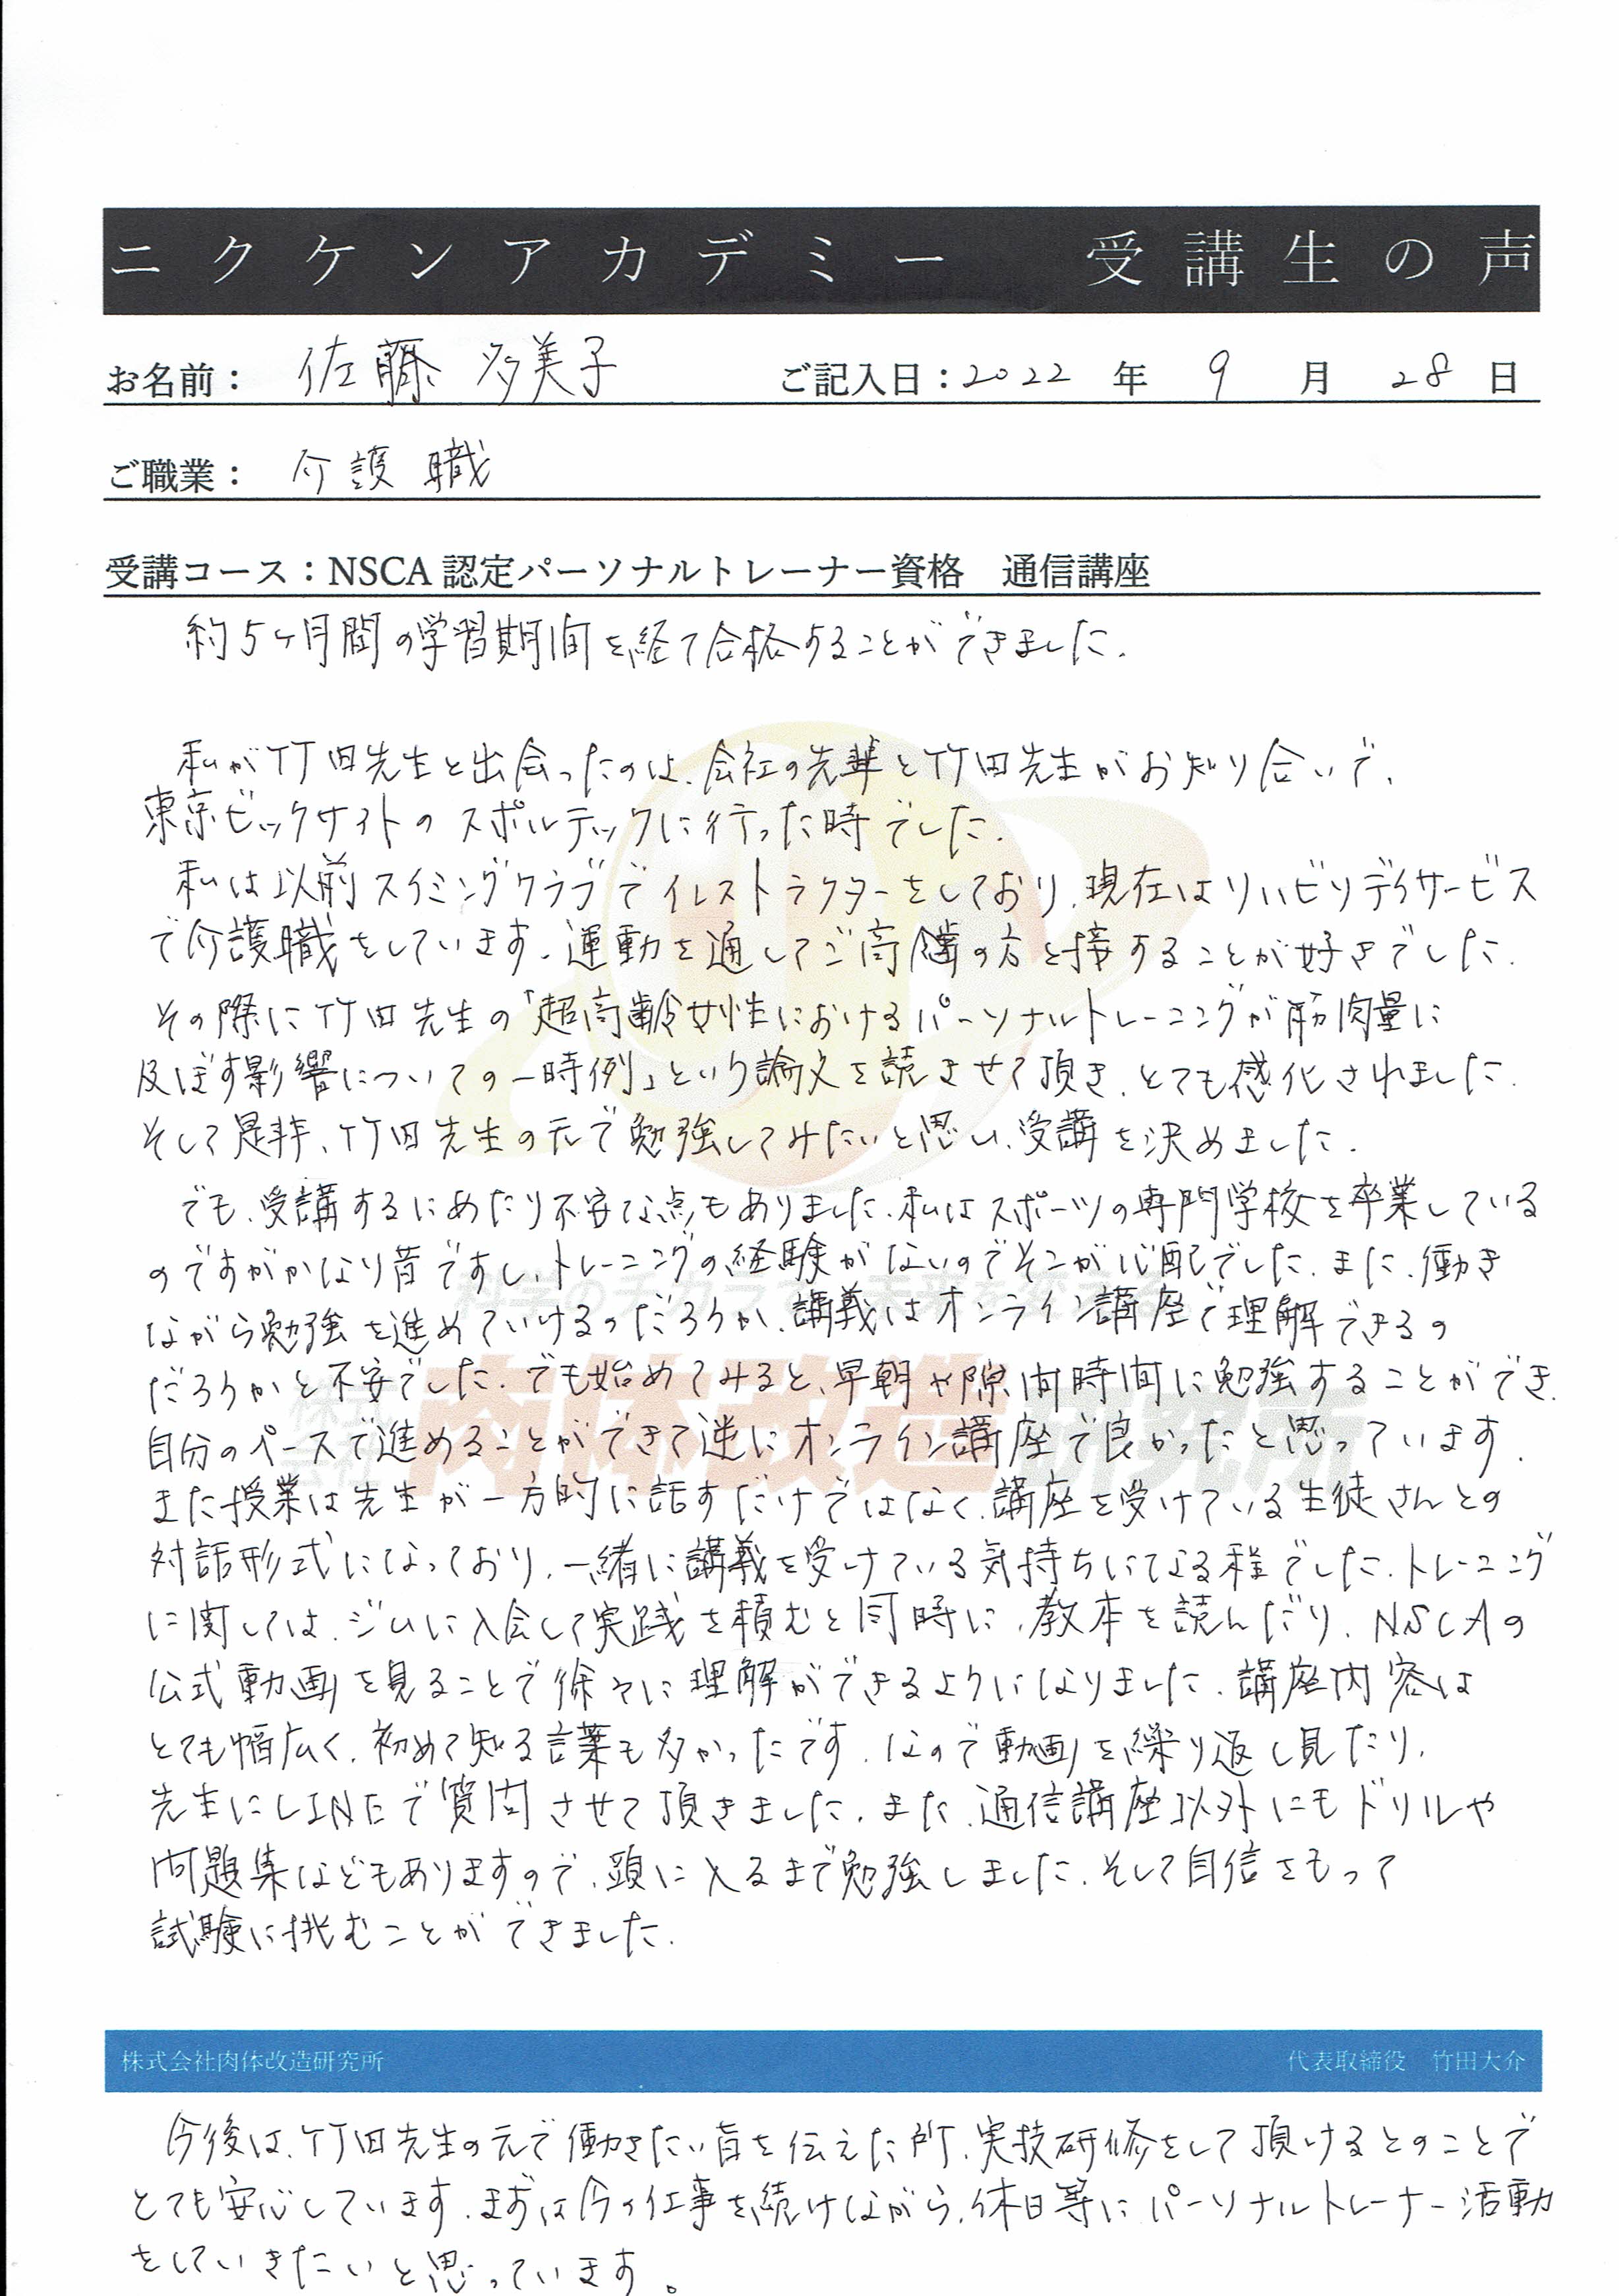 ニクケンアカデミー 受講生の声
お名前： 佐藤 多美子 ご記入日：2022 年 9 月 28 日
ご職業： 介護職
受講コース：NSCA認定パーソナルトレーナー資格 通信講座
約5ヶ月間の学習期間を経て合格することができました.
私が竹田先生と出会ったのは、会社の先輩と竹田先生がお知り合いで、
東京ビックサイトのスポルテックに行った時でした.
私は以前スイミングクラブでイレストラクターをしており、現在はリハビリデイサービス
で介護職をしています. 運動を通してご高齢の方と接することが好きでした.
その際に竹田先生の「超高齢女性におけるパーソナルトレーニングが筋肉量に
及ぼす影響についての一時例」という論文を読ませて頂き、とても感化されました.
そして是非、竹田先生の元で勉強してみたいと思い、受講を決めました.
でも、受講するにあたり不安な点もありました. 私はスポーツの専門学校を卒業している
のですがかなり昔ですし、トレーニングの経験がないのでそこが心配でした. また、働き
ながら勉強を進めていけるのだろうか、講義はオンライン講座で理解できるの
だろうかと不安でした. でも始めてみると、早朝や隙間時間に勉強することができ、
自分のペースで進めることができて逆にオンライン講座で良かったと思っています.
また授業は先生が一方的に話すだけではなく、講座を受けている生徒さんとの
対話形式になっており、一緒に講義を受けている気持ちになる程でした. トレーニング
に関しては、ジムに入会して実践を積むと同時に、教本を読んだり、NSCAの
公式動画を見ることで徐々に理解ができるようになりました. 講座内容は
とても幅広く、初めて知る言葉も多かったです. なので動画を繰り返し見たり、
先生にLINEで質問させて頂きました. また、通信講座以外にもドリルや
問題集などもありますので、頭に入るまで勉強しました. そして自信をもって
試験に挑むことができました.
科学のチカラで未来を変える
株式会社 肉体改造研究所
株式会社肉体改造研究所 代表取締役 竹田大介
今後は、竹田先生の元で働きたい旨を伝えた所、実技研修をして頂けるとのことで
とても安心しています. まずは今の仕事を続けながら、休日等にパーソナルトレーナー活動
をしていきたいと思っています。